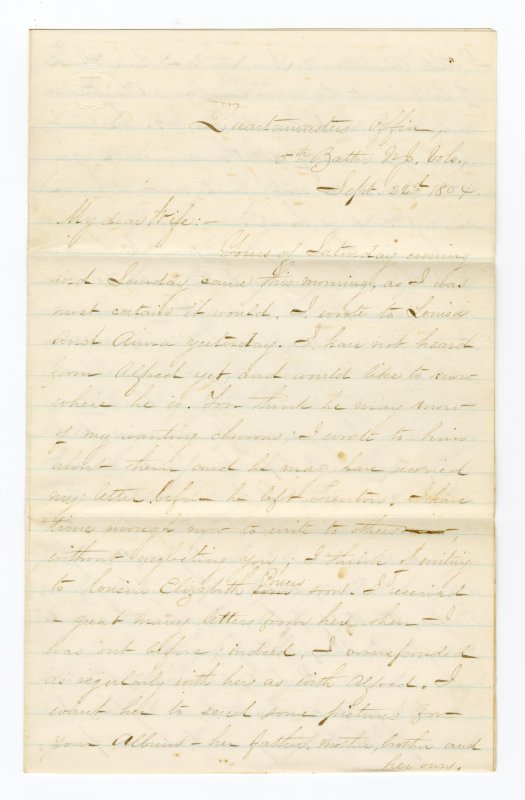 Quartermasters Office,
5th Batt. N.J. Vols.,
Sept. 22d 1864.
My dear Wife:-
Yours of Saturday evening
and Sunday came this morning, as I was
most certain it would. I wrote to Louisa
and Anna yesterday. I have not heard
from Alfred yet and would like to know
where he is. You think he may know
of my wanting chevrons; I wrote to him
about them and he may have received
my letter before he left Trenton. I have
time enough now to write to others,
without neglecting you; I think of writing
to Cousin Elizabeth Powers soon. I received
a great many letters from her when I
was out before; indeed, I corresponded
as regularly with her as with Alfred. I
want her to send some pictures for
your Album - her father, mother, brother and
her own.